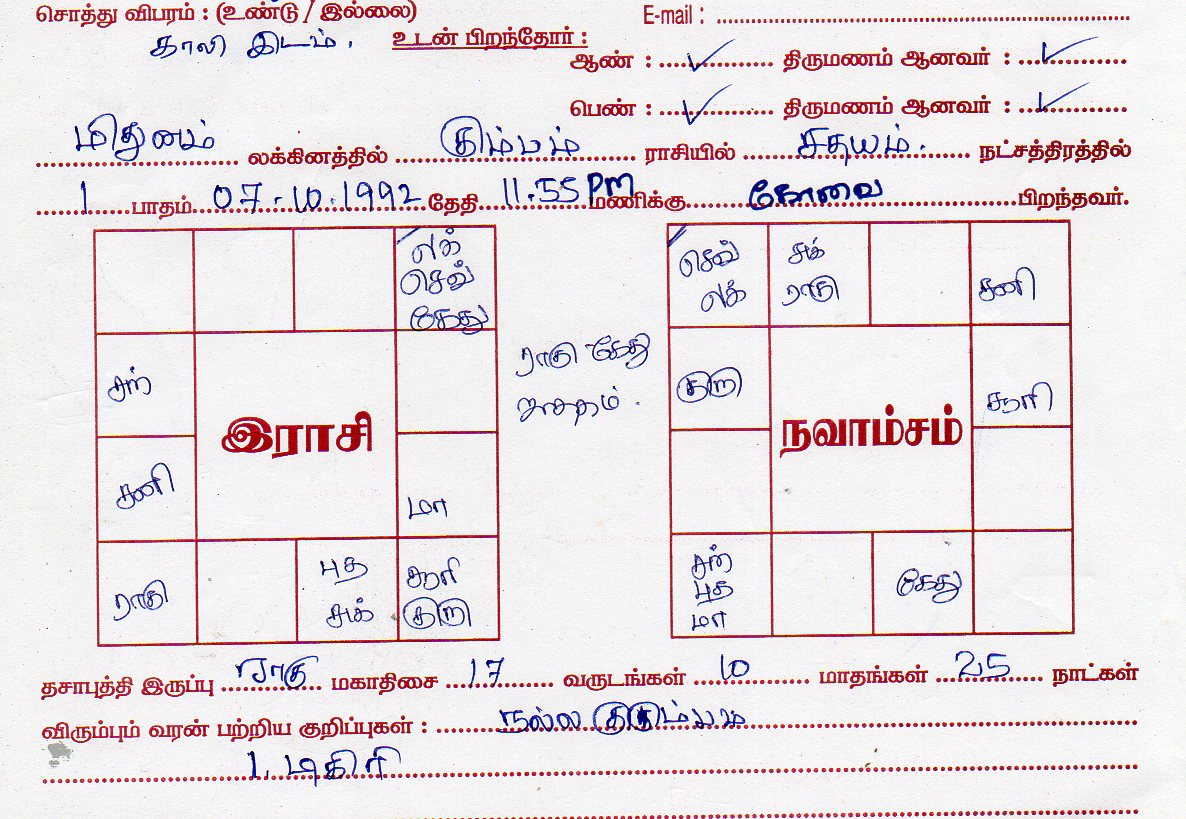 சொத்து விபரம் : (உண்டு / இல்லை) E-mail : ..............................
காலி இடம். உடன் பிறந்தோர் :
ஆண் : ✓ திருமணம் ஆனவர் : ✓
பெண் : ✓ திருமணம் ஆனவர் : ✓
மிதுனம் லக்கினத்தில் கும்பம் ராசியில் சதயம். நட்சத்திரத்தில்
1 பாதம் 07.10.1992 தேதி 11.55 PM மணிக்கு கோவை பிறந்தவர்.
லக்
செவ்
கேது
சந்
சனி
மா
ராகு
புத
சுக்
சூரி
குரு
இராசி
ராகு கேது
செவ்
லக்
சுக்
ராகு
சனி
குரு
சூரி
சந்
புத
மா
கேது
நவாம்சம்
தசாபுத்தி இருப்பு ராகு மகாதிசை 17 வருடங்கள் 10 மாதங்கள் 25 நாட்கள்
விரும்பும் வரன் பற்றிய குறிப்புகள் : நல்ல குடும்பம்
1. டிகிரி